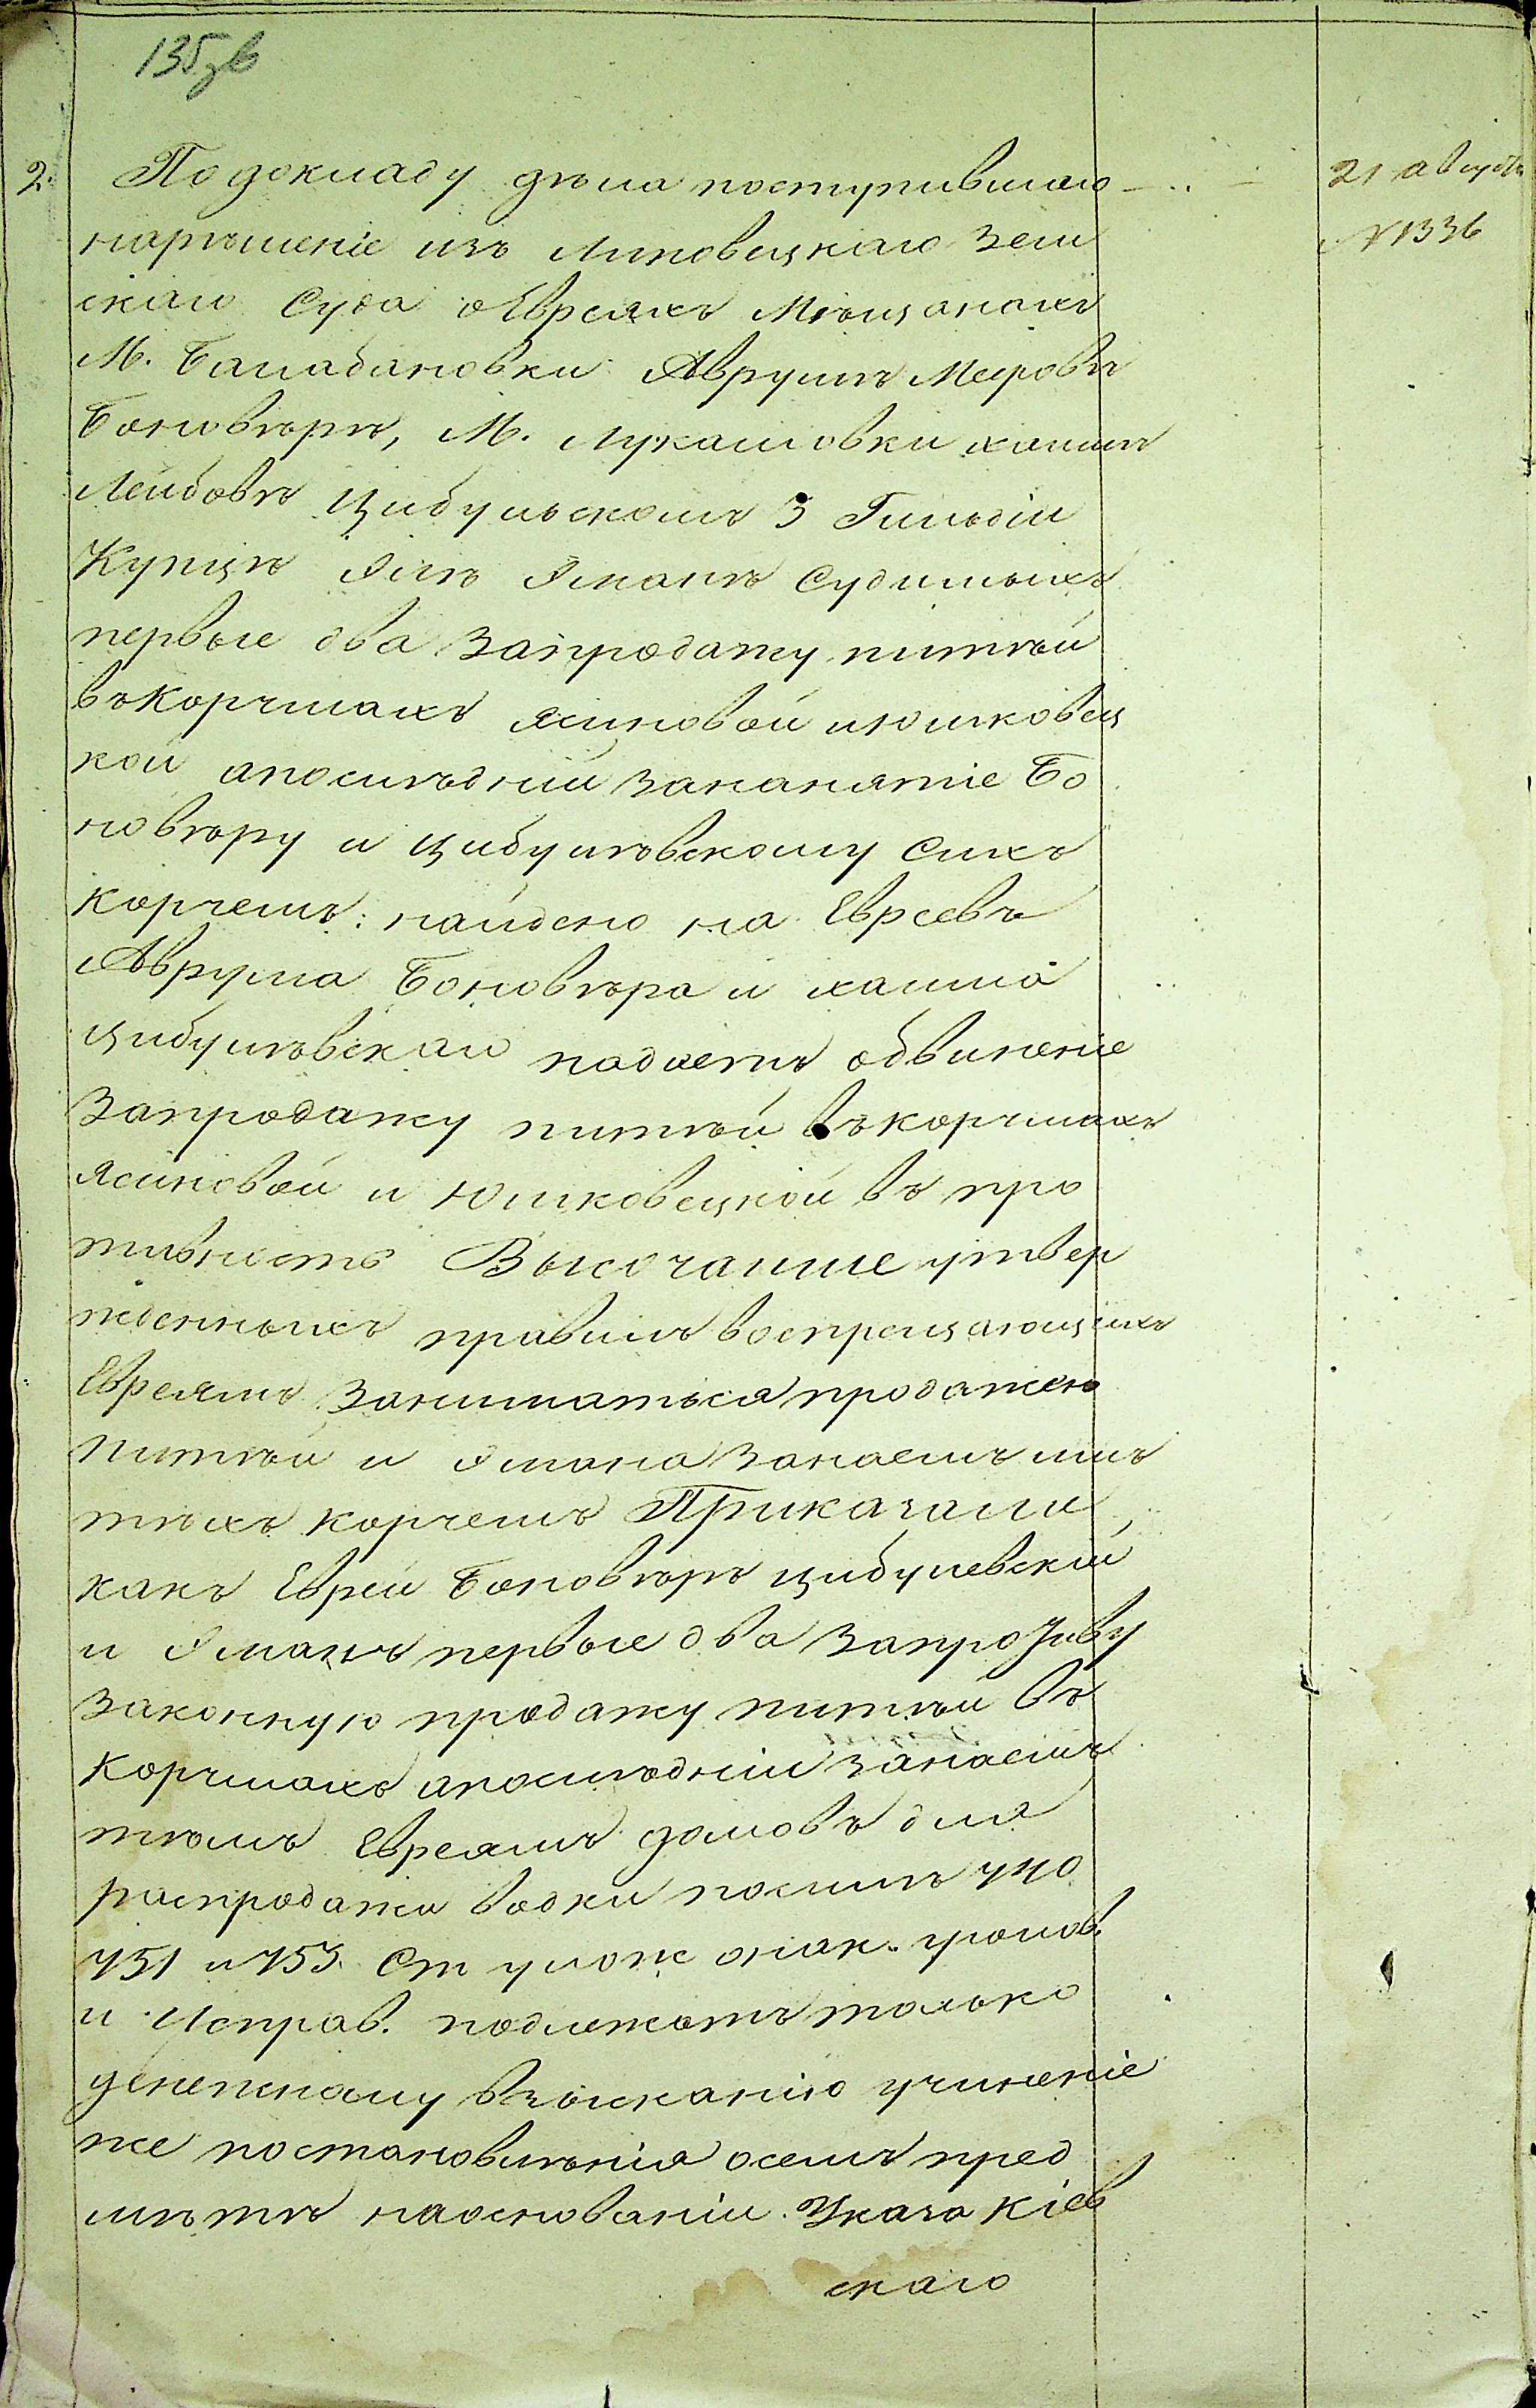 135зв
2. По докладу дѣла поступившаго 21 августа
нарѣшеніе изъ Липовецкаго Зем №1336
скаго Суда оЕвреяхъ Мѣщанахъ
М. Балабановки Аврумѣ Меровѣ
Боновѣрѣ, М. Лукашовки хаимѣ
Лейбовѣ Цибульскомъ 3 Гильдіи
Купцѣ судимыхъ
первые два Запродажу питѣй
въКорчмахъ Ясиновой июшковец
кой апослѣдній зананятіе Бо
новѣру и Цибулѣвскому сихъ
корчемъ: найдено на Евреевъ
Аврума Боновѣра и хаима
Цибулѣвскаго падаетъ обвиненіе
Запродажу питѣй въкорчмахъ
Ясиновой и Юшковецкой въ про
тивность Высочайше утвер
жденныхъ правилъ воспрещающихъ
Евреямъ Заниматься продажею
питѣй и Ямана Занаемъ имъ
тѣхъ корчемъ Приказали
какъ Еврей Боновѣръ Цибулевскій
и Яманъ первые два
Законную продажу питѣй въ
Корчмахъ апослѣдній Занаемъ
тѣмъ Евреямъ домовъ для
распродажи водки посилѣ 740
751 и 753. Ст улож онак. уголов.
и Исправ. подлежатъ только
денежному взысканію учиненіе
же постановлѣнія осемъ пред
мѣтѣ наоснованіи Указа Кіев
скаго